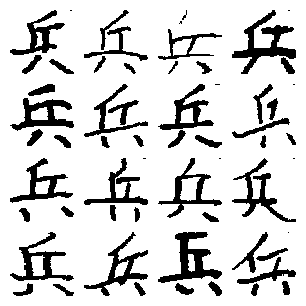 兵兵兵兵
兵兵兵兵
兵兵兵兵
兵兵兵兵